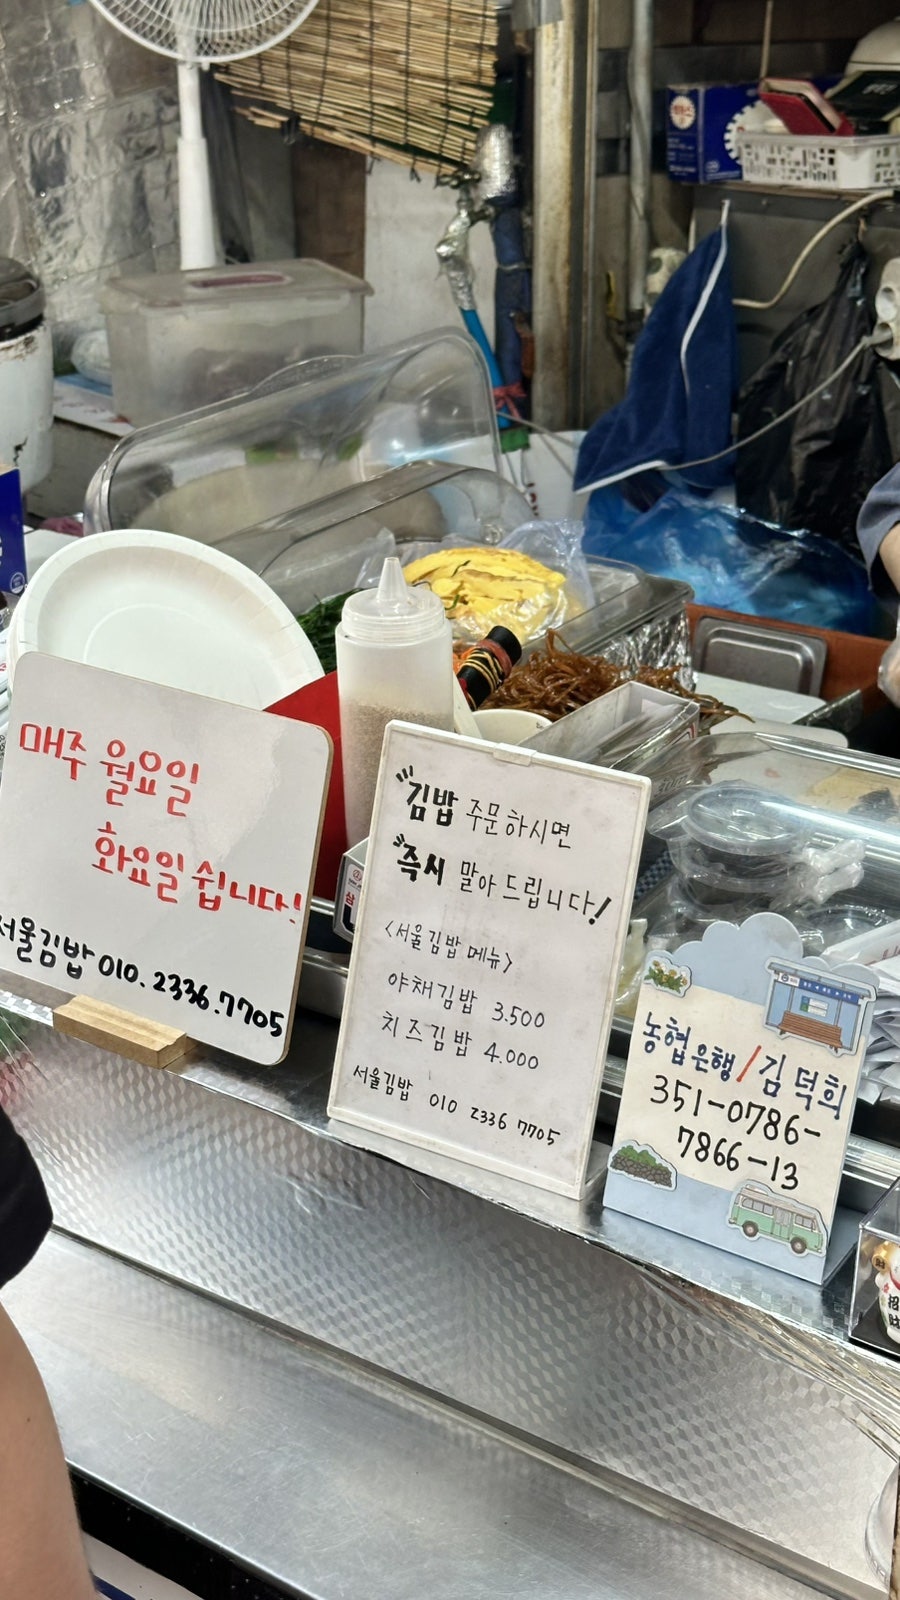 매주 월요일
화요일 쉽니다!
서울김밥 010. 2336.7705
"김밥 주문하시면
"즉시 말아 드립니다!
<서울김밥 메뉴>
야채김밥 3.500
치즈김밥 4.000
서울김밥 010 2336 7705
농협은행/김덕희
351-0786-
7866-13
招
財